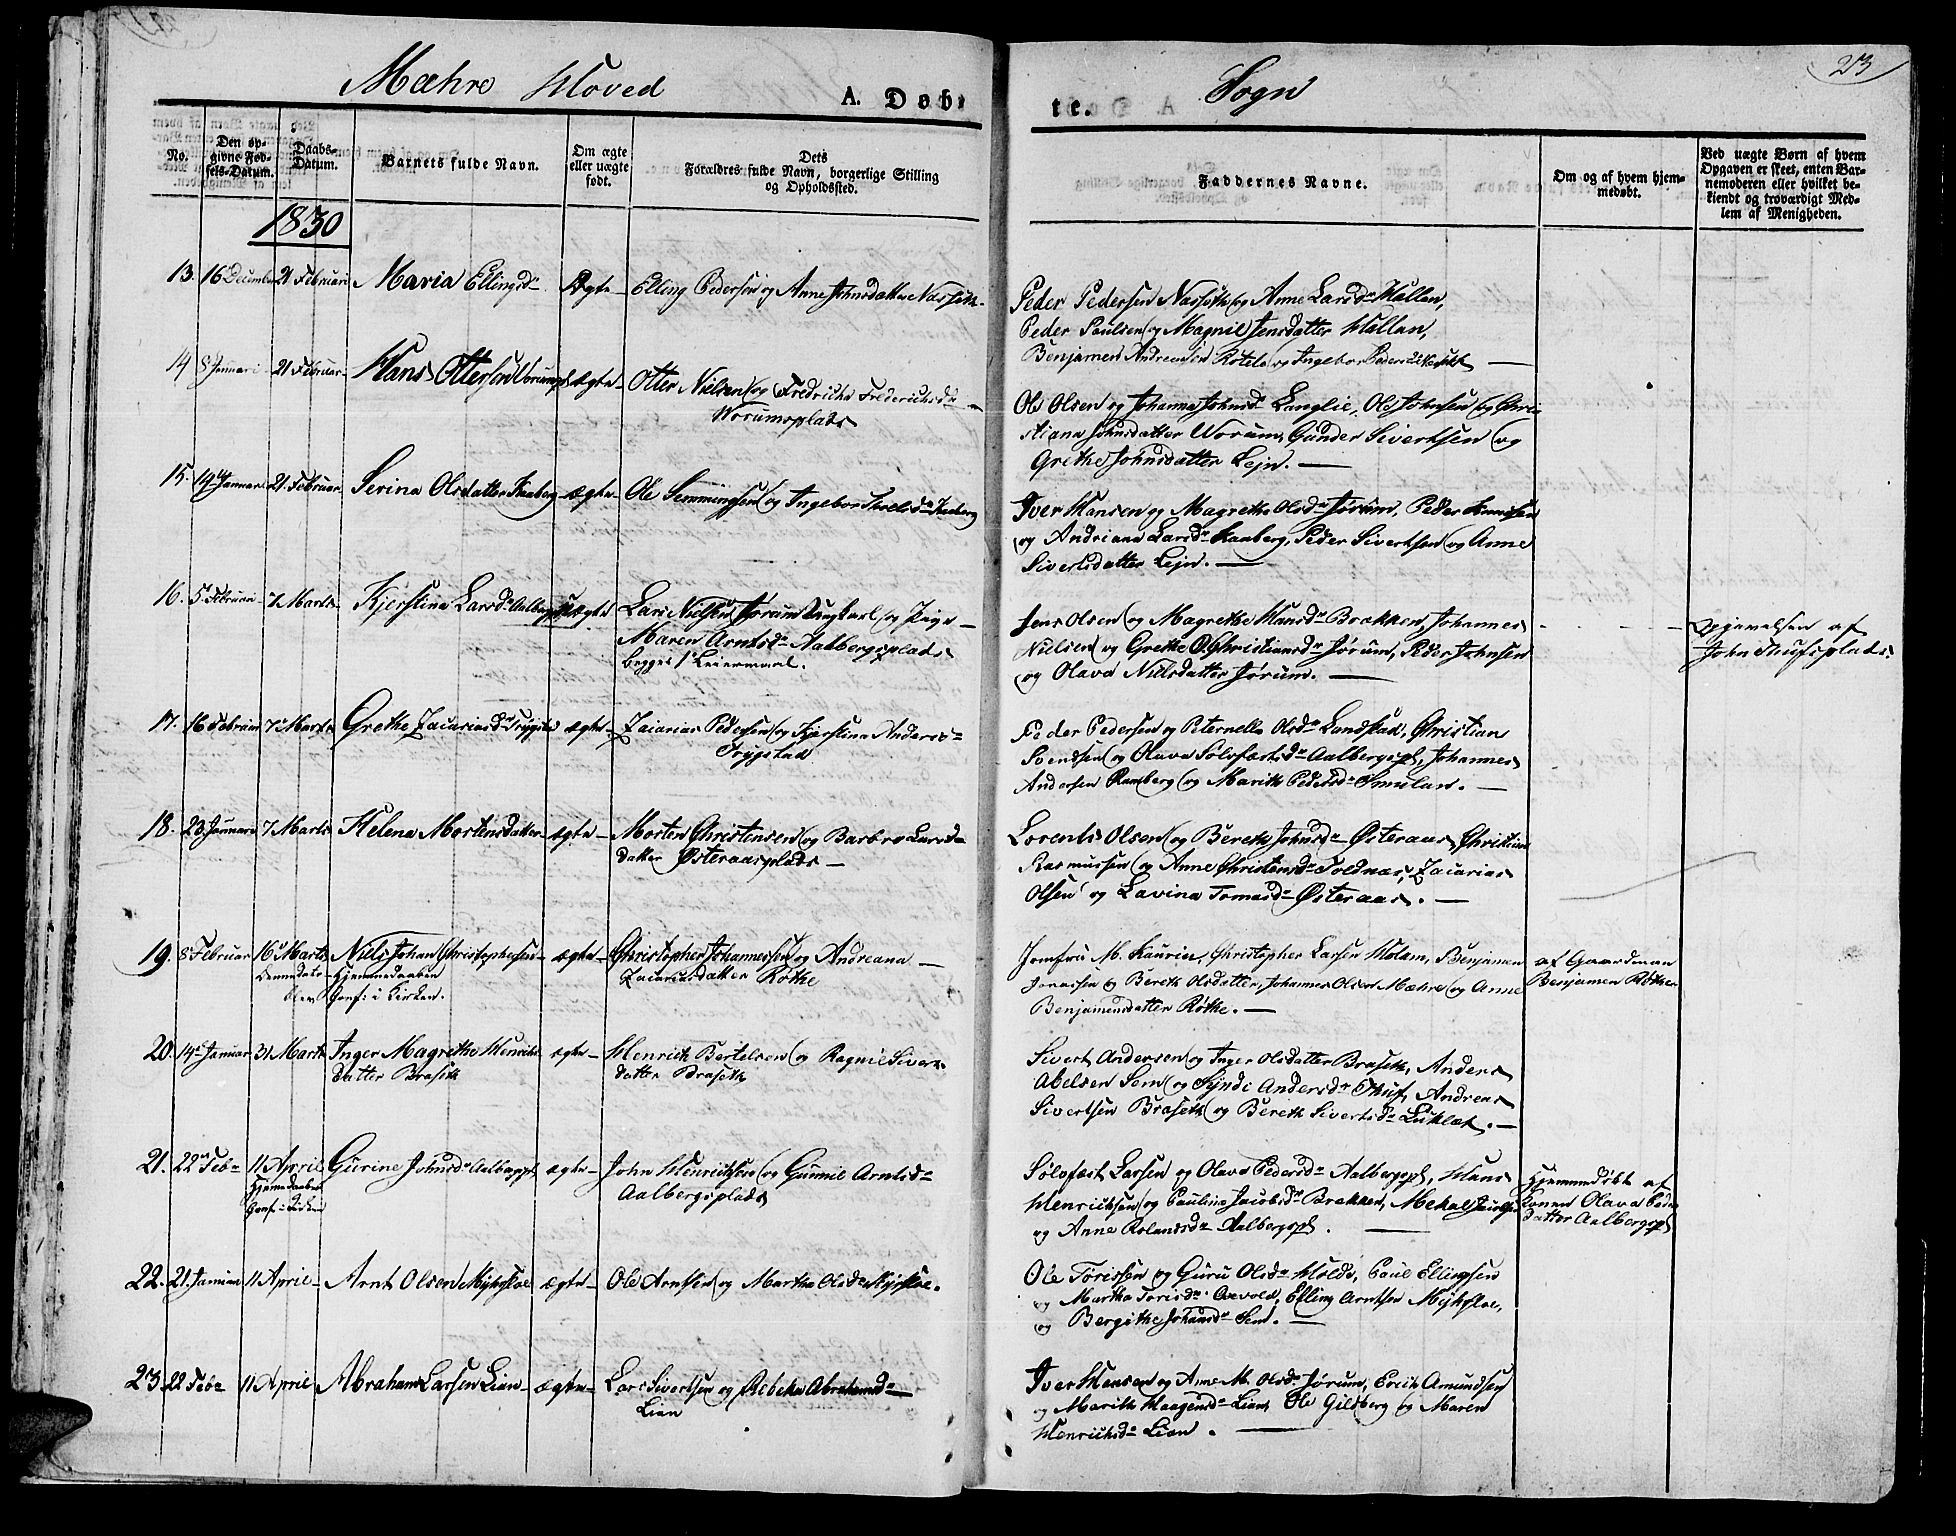 Mæhre Hoved Sogn
23
A. Døbte.
No.
Den opgivne Fødsels-Datum.
Daabs-Datum.
Barnets fulde Navn.
Om ægte eller uægte født.
Dets Forældres fulde Navn, borgerlige Stilling og Opholdssted.
Faddernes Navne.
Om og af hvem hjemmedøbt.
Ved uægte Børn af hvem Opgaven er skeet, enten Barnemoderen eller hvilket bekiendt og troværdigt Medlem af Menigheden.
1830
13. 16 December 21 Februari Maria Ellingsd. Ægte Elling Pedersen og Anne Johnsdatter
Peder Pedersen og Anne Larsd. Hallan,
Peder Paulsen og Magnil Jensdatter Hallan,
Benjamen Andreassen og Ingebor Pedersd.
14 8 Januari 21 Februar Hans Ottersen ægte Otter Nielsen og Fredricha Frederichsd.
Worumsplads
Ole Olsen og Johanna Johnsd. Langlie, Ole Johnsen og Chris
tiana Johnsdatter Worum, Gunder Sivertsen og
Grethe Johnsdatter Lejn.
15. 19 Januar 21 Februar Serina Olsdatter ægte Ole Semmingsen og Ingebor
Iver Hansen og Magrethe Olsd. Jørum, Peder
og Andriana Larsd. Kaaberg, Peder Sivertsen og Anne
Sivertsdatter Lejn.
16. 5 Februar 7 Marts Kjerstina Larsd. uægte Lars Nielsen Jørum Ungkarl og Pige
Maren Arntsd. Aalbergsplads
begges 1e Leiermaal.
Jens Olsen og Magrethe Hansd. Brækken, Johannes
Nielsen og Grethe Christiansd. Jørum, Peder Johnsen
og Olava Nielsdatter Jørum.
Opgivelsen af
John Thufsplads.
17. 16 Februar 7 Marts Grethe Zacariasd. Trygstad ægte Zacarias Pedersen og Kjerstina Andersd.
Trygstad
Peder Pedersen og Peternella Olsd. Landstad, Christian
Svendsen og Olava Solofæstsd. Aalbergspl, Johannes
Andersen Ramberg og Marith Pedersd. Smulan.
18. 23 Januari 7 Marts Helena Mortensdatter ægte Morten Christensen og Barbro Lars
datter Østeraasplads
Lorents Olsen og Bereth Johnsd. Østeraas, Christian
Rasmussen og Anne Christensd. Toldnæs, Zacarias
Olsen og Lavina Tomasd. Østeraas.
19. 8 Februar 16 Marts Niels Johan Christophersen ægte Christopher Johannessen og Andreana
Hjemmedaaben
Conf: i Kirken.
Zacariasdatter Røthe
Jomfru M. Kaurin, Christopher Larsen Holam, Benjamen
og Bereth Olsdatter, Johannes Olsen Mæhre og Anne
Benjamensdatter Røthe.
af Gaardman
Benjamen Røthe
20. 14 Januar 31 Marts Inger Magretha Henrichs ægte Henrich Bertelsen og Ragnil Sivers
datter Braseth
datter Braseth
Sivert Andersen og Inger Olsdatter Braseth, Anders
Abelsen Sem og Synde Andersd. Thuf, Andreas
Sivertsen Braseth og Bereth Sivertsd.
21. 22 Feb 11 Aprie Gurine Johnsd. Aalbergspl ægte John Henrichsen og Gunnil Arntsd.
Hjemdaaben
Conf: i Kirken
Aalbergsplads
Solofæst Larsen og Olava Pedersd. Aalbergspl, Hans
Henrichsen og Paulina Jacobsd. Brækken, Mekal Jacobsen
og Anne Rolandsd. Aalbergspl.
Hjemmedøbt af
Konen Olava Peders
datter Aalbergspl
22. 21 Januar 11 Aprie Arnt Olsen ægte Ole Arntsen og Martha Olsd.
Ole Torissen og Guru Olsd. Holde, Paul Ellingsen
og Martha Torisd. Aavold, Elling Arntsen
og Bergithe Johansd. Sem.
23 22 Feb 11 Aprie Abraham Larsen Lian ægte Lars Sivertsen og Rebeka Abrahamsd.
Lian
Iver Hansen og Anne M. Olsd. Jørum, Erich Amundsen
og Marith Haagensd. Lian, Ole Gildberg og Maren
Henrichsd. Lian.